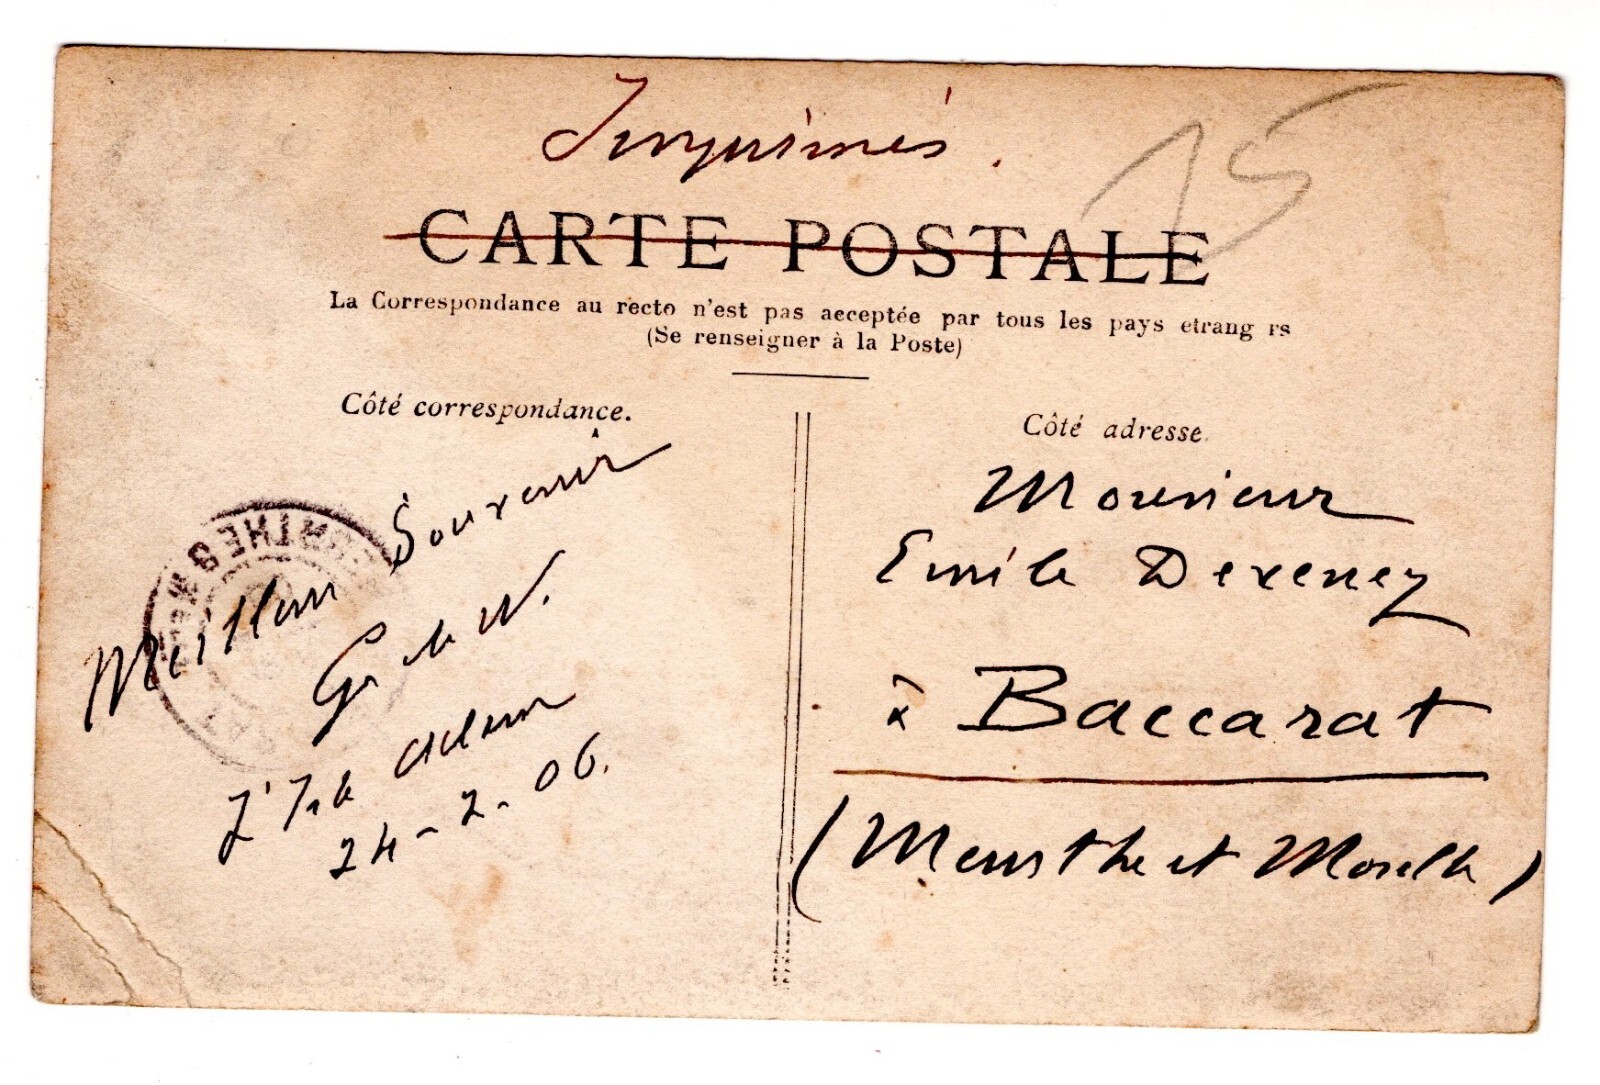 Imprimés.
15
CARTE POSTALE
La Correspondance au recto n'est pas aeceptée par tous les pays etrang rs
(Se renseigner à la Poste)
Côté correspondance.
Meilleur Souvenir
G de W.
L'Isle Adam
24-2-06.
Côté adresse
Monsieur
Emile Dexeney
à Baccarat
(Meurthe et Moselle)